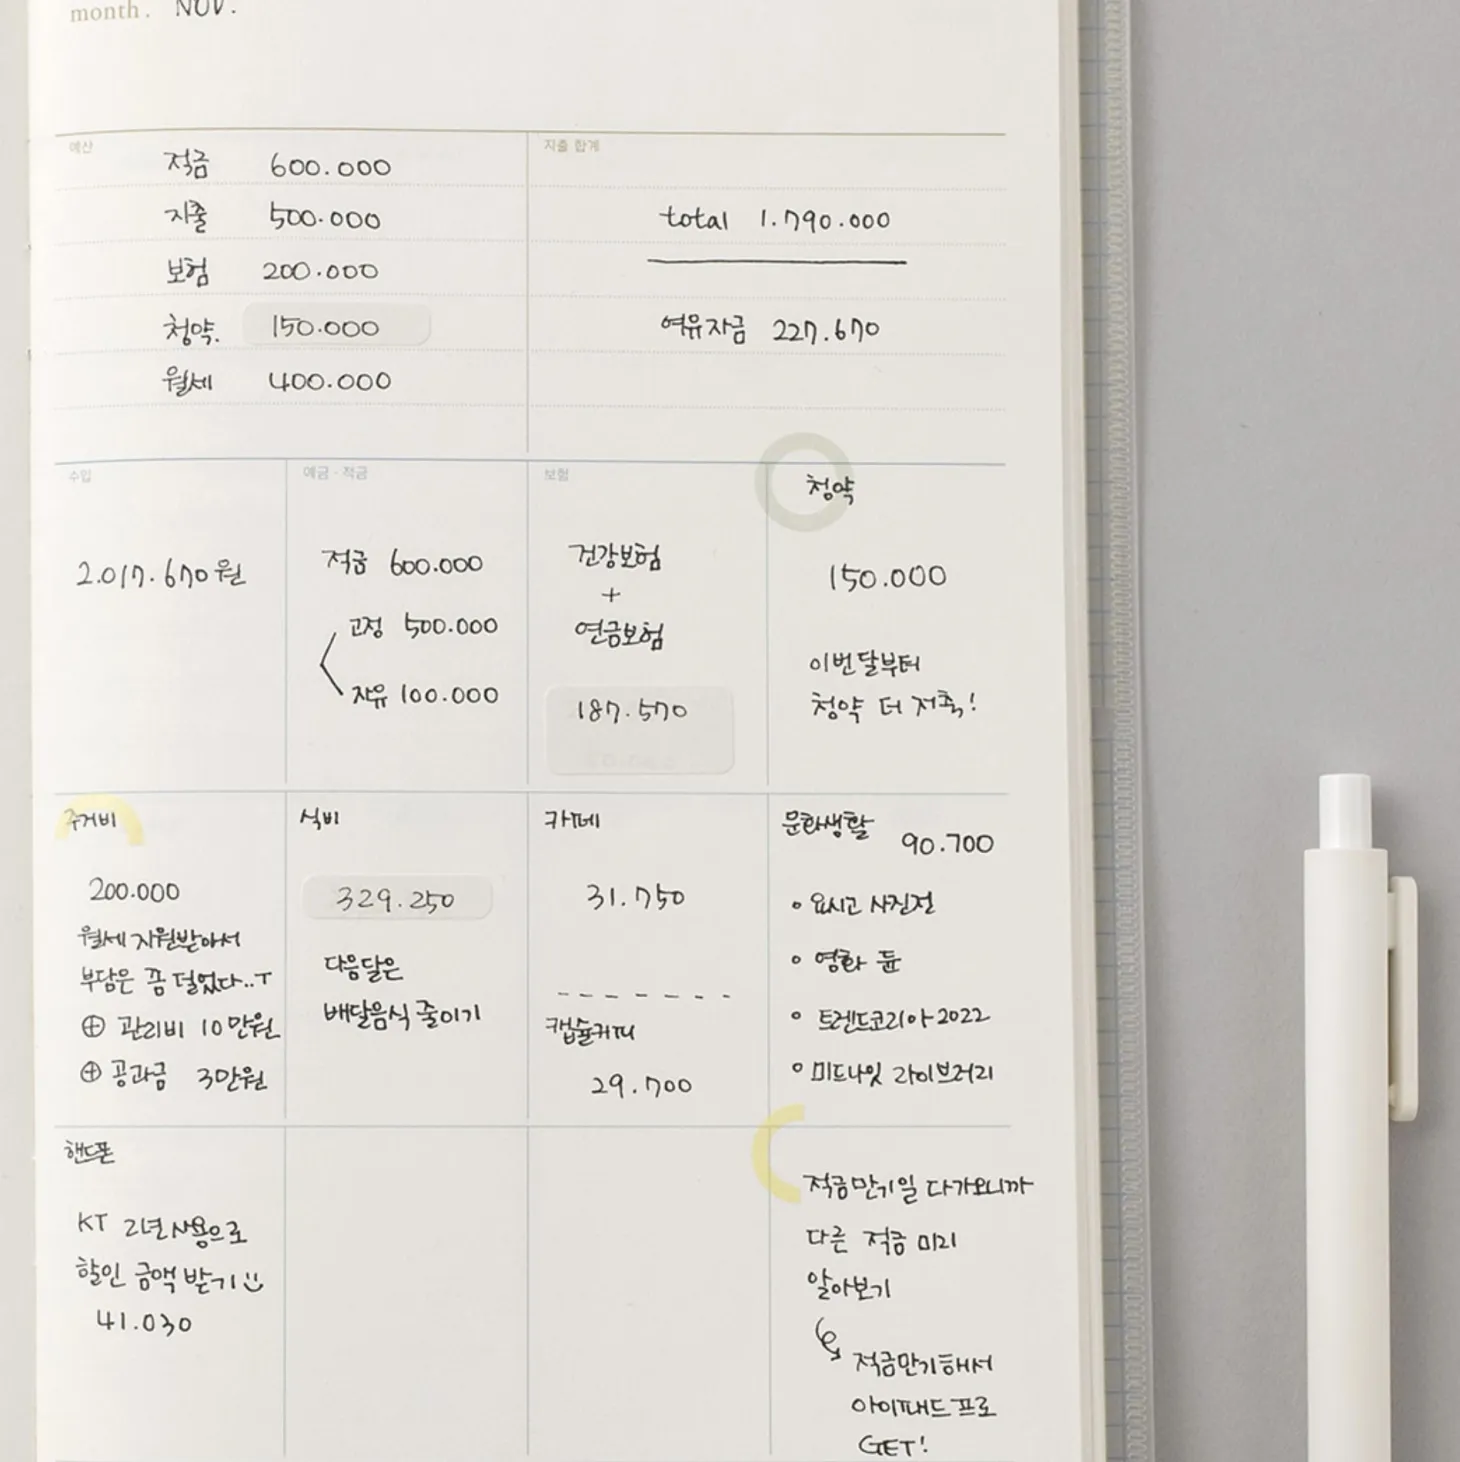 month. NOV.
예산
적금 600.000
지출 500.000
보험 200.000
청약. 150.000
월세 400.000
지출 합계
total 1.790.000
여유자금 227.670
수입
2.017.670원
예금·적금
적금 600.000
고정 500.000
자유 100.000
보험
건강보험
+
연금보험
187.570
청약
150.000
이번달부터
청약 더 저축!
주거비
200.000
월세 지원받아서
부담은 꼼 덜었다..T
⊕ 관리비 10만원
⊕ 공과금 3만원
식비
329.250
다음달은
배달음식 줄이기
카페
31.750
캡슐커피
29.700
문화생활 90.700
◦ 요시고 사진전
◦ 영화 듄
◦ 트렌드코리아 2022
◦ 미드나잇 라이브러리
핸드폰
KT 2년 사용으로
할인 금액 받기
41.030
적금만기일 다가오니까
다른 적금 미리
알아보기
적금만기해서
아이패드 프로
GET!